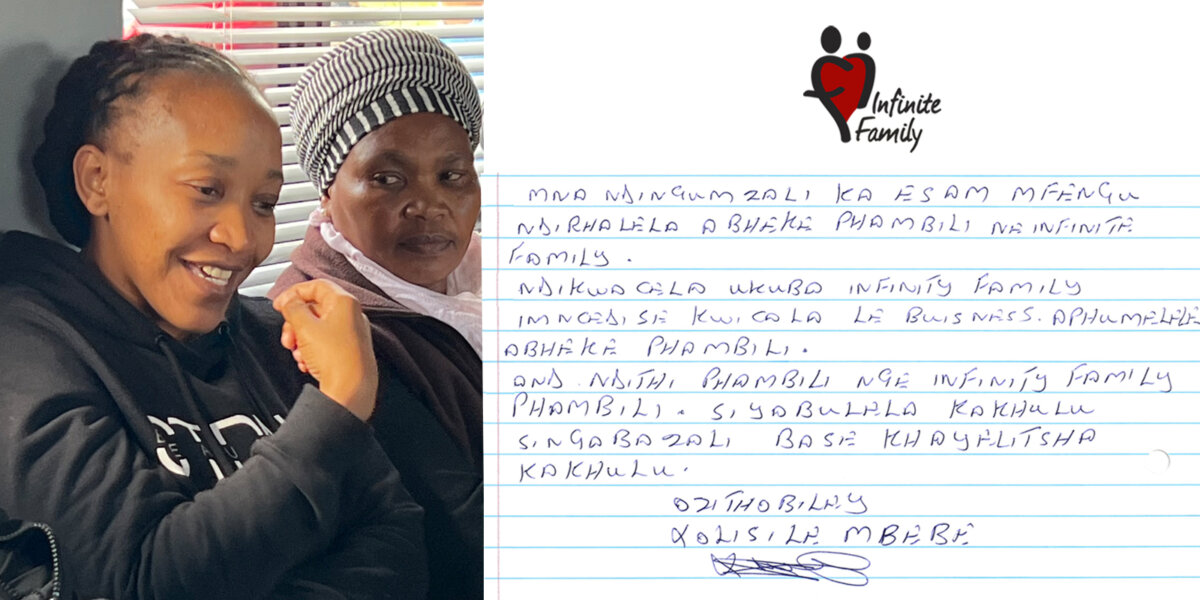 Infinite
Family
MNA NDINGUMZALI KA ESAM MFENGU
NDIRHALELA ABHEKE PHAMBILI NEINFINITE
FAMILY.
NDIKWACELA UKUBA INFINITY FAMILY
IMNCEDISE KWICALA LE BUISNESS. APHUMELELE
ABHEKE PHAMBILI.
AND NDITHI PHAMBILI NGE INFINITY FAMILY
PHAMBILI. SIYABULELA KAKHULU
SINGABAZALI BASE KHAYELITSHA
KAKHULU.
OZITHOBILEY
XOLISILE MBEBE